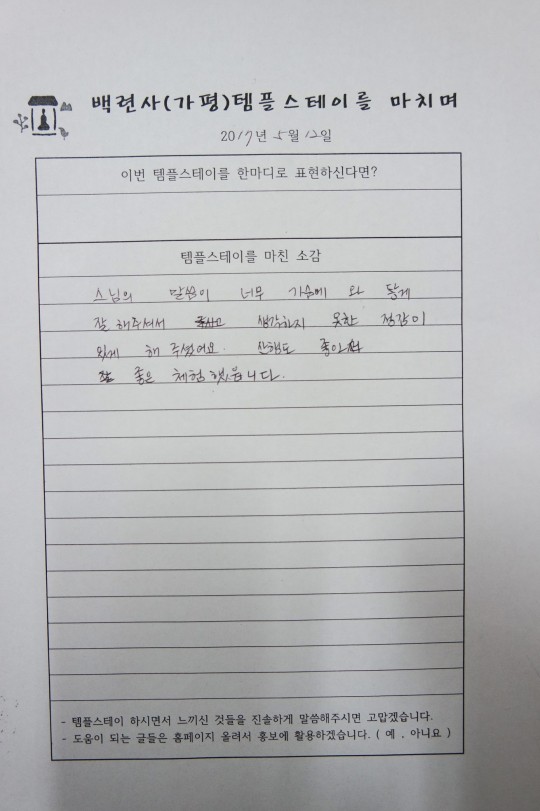 백련사(가평)템플스테이를 마치며
2017년 5월 12일
이번 템플스테이를 한마디로 표현하신다면?
템플스테이를 마친 소감
스님의 말씀이 너무 가슴에 와 닿게
잘 해주셔서 생각하지 못한 정감이
있게 해 주셨어요. 산행도 좋아
좋은 체험했습니다.
- 템플스테이 하시면서 느끼신 것들을 진솔하게 말씀해주시면 고맙겠습니다.
- 도움이 되는 글들은 홈페이지 올려서 홍보에 활용하겠습니다. ( 예 , 아니요 )